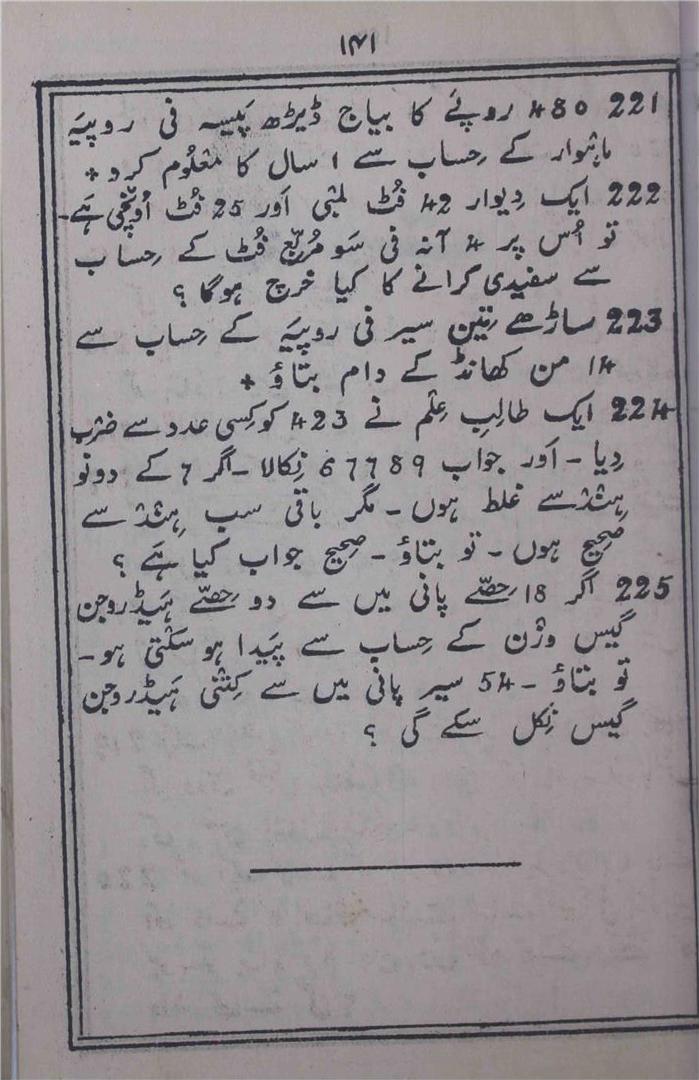 ۱۴۱
221 480 روپئے کا بیاج ڈیڑھ پیسہ فی روپیہ
ماہوار کے حساب سے ۱ سال کا معلُوم کرو +
222 ایک دِیوار 42 فُٹ لمبی اَور 25 فُٹ اُونچی ہَے۔
تو اُس پر 4 آنہ فی سَو مُربّع فُٹ کے حِساب
سے سفیدی کرانے کا کیا خرچ ہوگا ؟
223 ساڑھے تِین سیر فی روپیہ کے حِساب سے
14 من کھانڈ کے دام بتاؤ +
224 ایک طالِبِ عِلم نے 423 کو کِسی عدد سے ضرب
دِیا - اَور جواب 67789 نِکالا - اگر 7 کے دونو
ہِندسے غلط ہوں - مگر باقی سب ہِندسے
صحِیح ہوں - تو بتاؤ - صحِیح جواب کیا ہَے ؟
225 اگر 18 حِصّے پانی میں سے دو حِصّے ہَیڈروجن
گیس وزْن کے حِساب سے پَیدا ہو سکْتی ہو -
تو بتاؤ - 54 سیر پانی میں سے کِتنی ہَیڈروجن
گیس نِکل سکے گی ؟